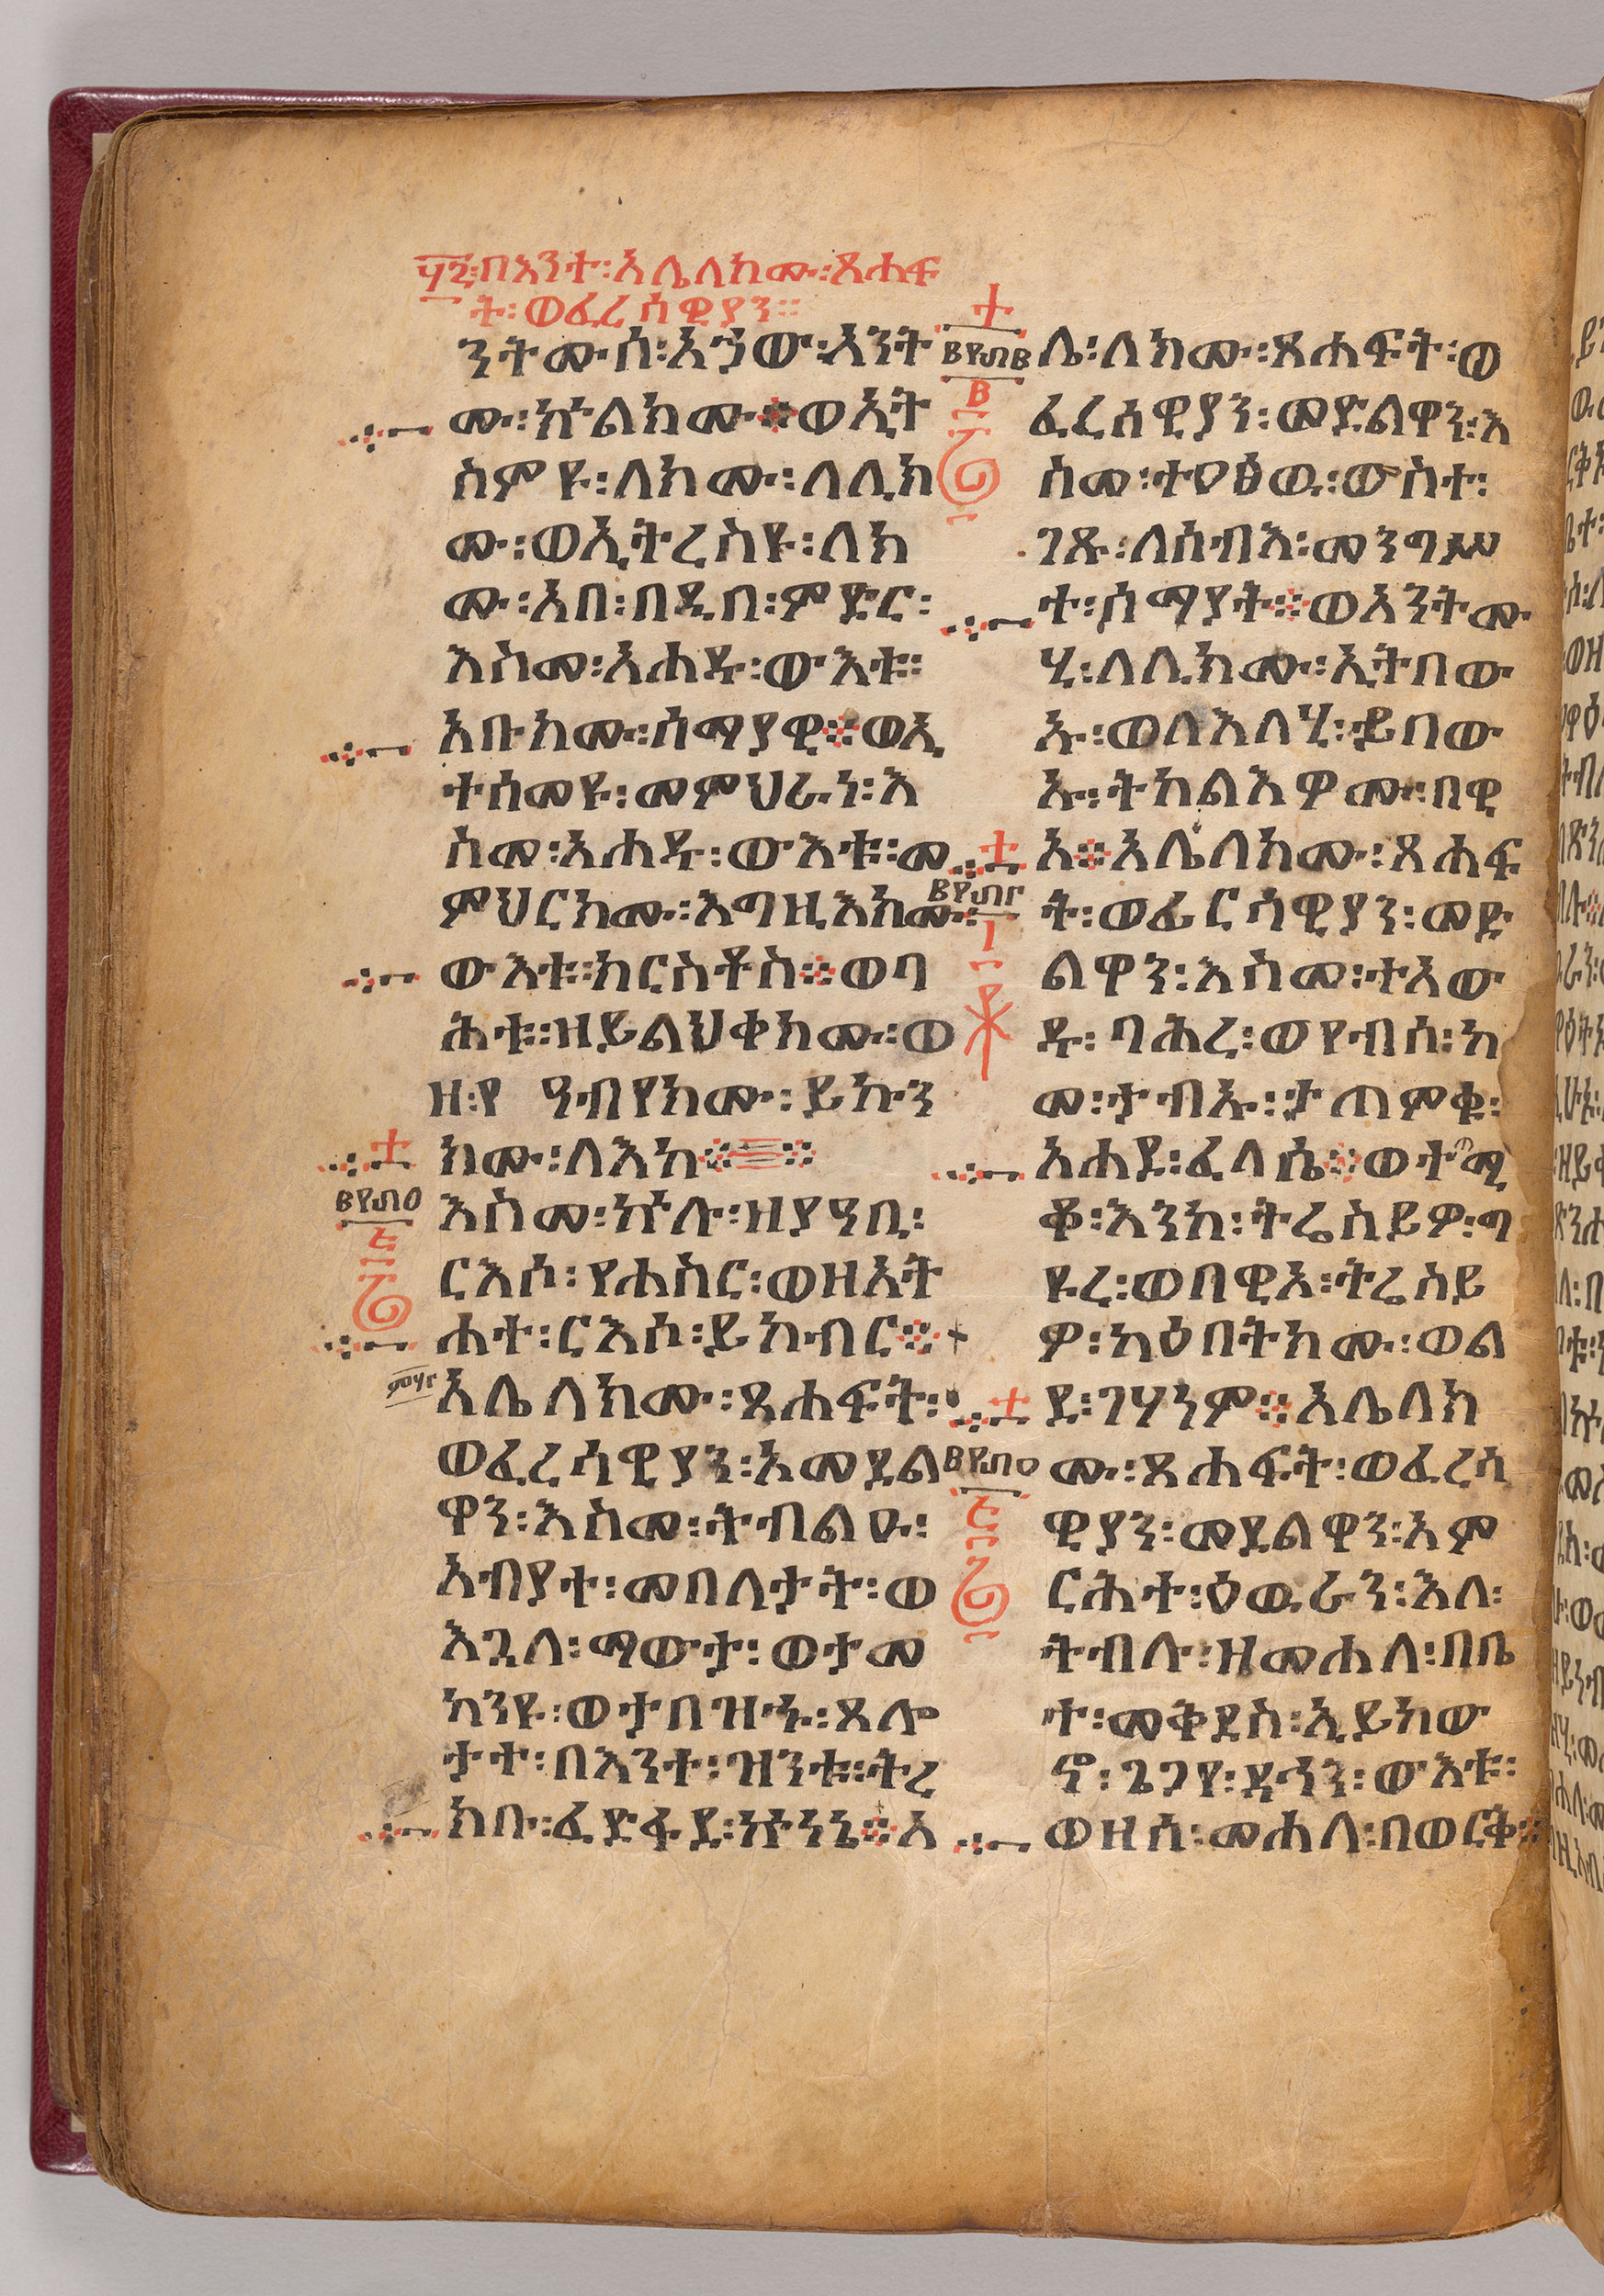 ፶፪፡በእንተ፡አሌለክሙ፡ጸሐፍ
ት፡ወፈሪሳዊያን።
ንትሙሰ፡አኀው፡አንት
ሙ፡ኵልክሙ፨ወኢት
ስምዩ፡ለክሙ፡ለሊክ
ሙ፡ወኢትረስዩ፡ለክ
ሙ፡አበ፡በዲበ፡ምድር፡
እስመ፡አሐዱ፡ውእቱ፡
አቡክሙ፡ሰማያዊ፨ወኢ
ተሰመዩ፡መምህራነ፡እ
ስመ፡አሐዱ፡ውእቱ፡መ
ምህርክሙ፡እግዚእክሙ፡
ውእቱ፡ክርስቶስ፨ወባ
ሕቱ፡ዘይልህቀክሙ፡ወ
ዘ፡የ ዓብየክሙ፡ይኩን
ክሙ፡ለእከ፨፨
እስመ፡ኵሉ፡ዘያዓቢ፡
ርእሶ፡የሐስር፡ወዘአት
ሐተ፡ርእሶ፡ይከብር፨
አሌለክሙ፡ጸሐፍት፡
ወፈሪሳዊያን፡አመደል
ዋን፡እስመ፡ትብልዑ፡
አብያተ፡መበለታት፡ወ
እጓለ፡ማውታ፡ወታመ
ካንዩ፡ወታበዝኁ፡ጸሎ
ታተ፡በእንተ፡ዝንቱ፡ትረ
ክቡ፡ፈድፋደ፡ኵነኔ፨አ
ሌ፡ለክሙ፡ጸሐፍት፡ወ
ፈሪሳዊያን፡መድልዋን፡እ
ስመ፡ተዐፅዉ፡ውስተ፡
ገጹ፡ለሰብእ፡መንግሥ
ተ፡ሰማያት፨ወአንትሙ
ሂ፡ለሊክሙ፡ኢትበው
ኡ፡ወለእለሂ፡ይበው
ኡ፡ትከልእዎሙ፡በዊ
አ፨አሌለክሙ፡ጸሐፍ
ት፡ወፈርሳዊያን፡መድ
ልዋን፡እስመ፡ተአው
ዱ፡ባሕረ፡ወየብሰ፡ከ
መ፡ታብኡ፡ታጠምቁ፡
አሐደ፡ፈላሴ፨ወተጠሚ
ቆ፡እንከ፡ትሬስይዎ፡ግ
ዩረ፡ወበዊአ፡ትሬስይ
ዎ፡ካዕበትክሙ፡ወል
ደ፡ገሃነም፨አሌለክ
ሙ፡ጸሐፍት፡ወፈሪሳ
ዊያን፡መደልዋን፡እም
ርሕተ፡ዕዉራን፡እለ፡
ትብሉ፡ዘመሐለ፡በቤ
ተ፡መቅደስ፡ኢይከው
ኖ፡ጌጋየ፡ደኅን፡ውእቱ፡
ወዘሰ፡መሐለ፡በወርቅ፨